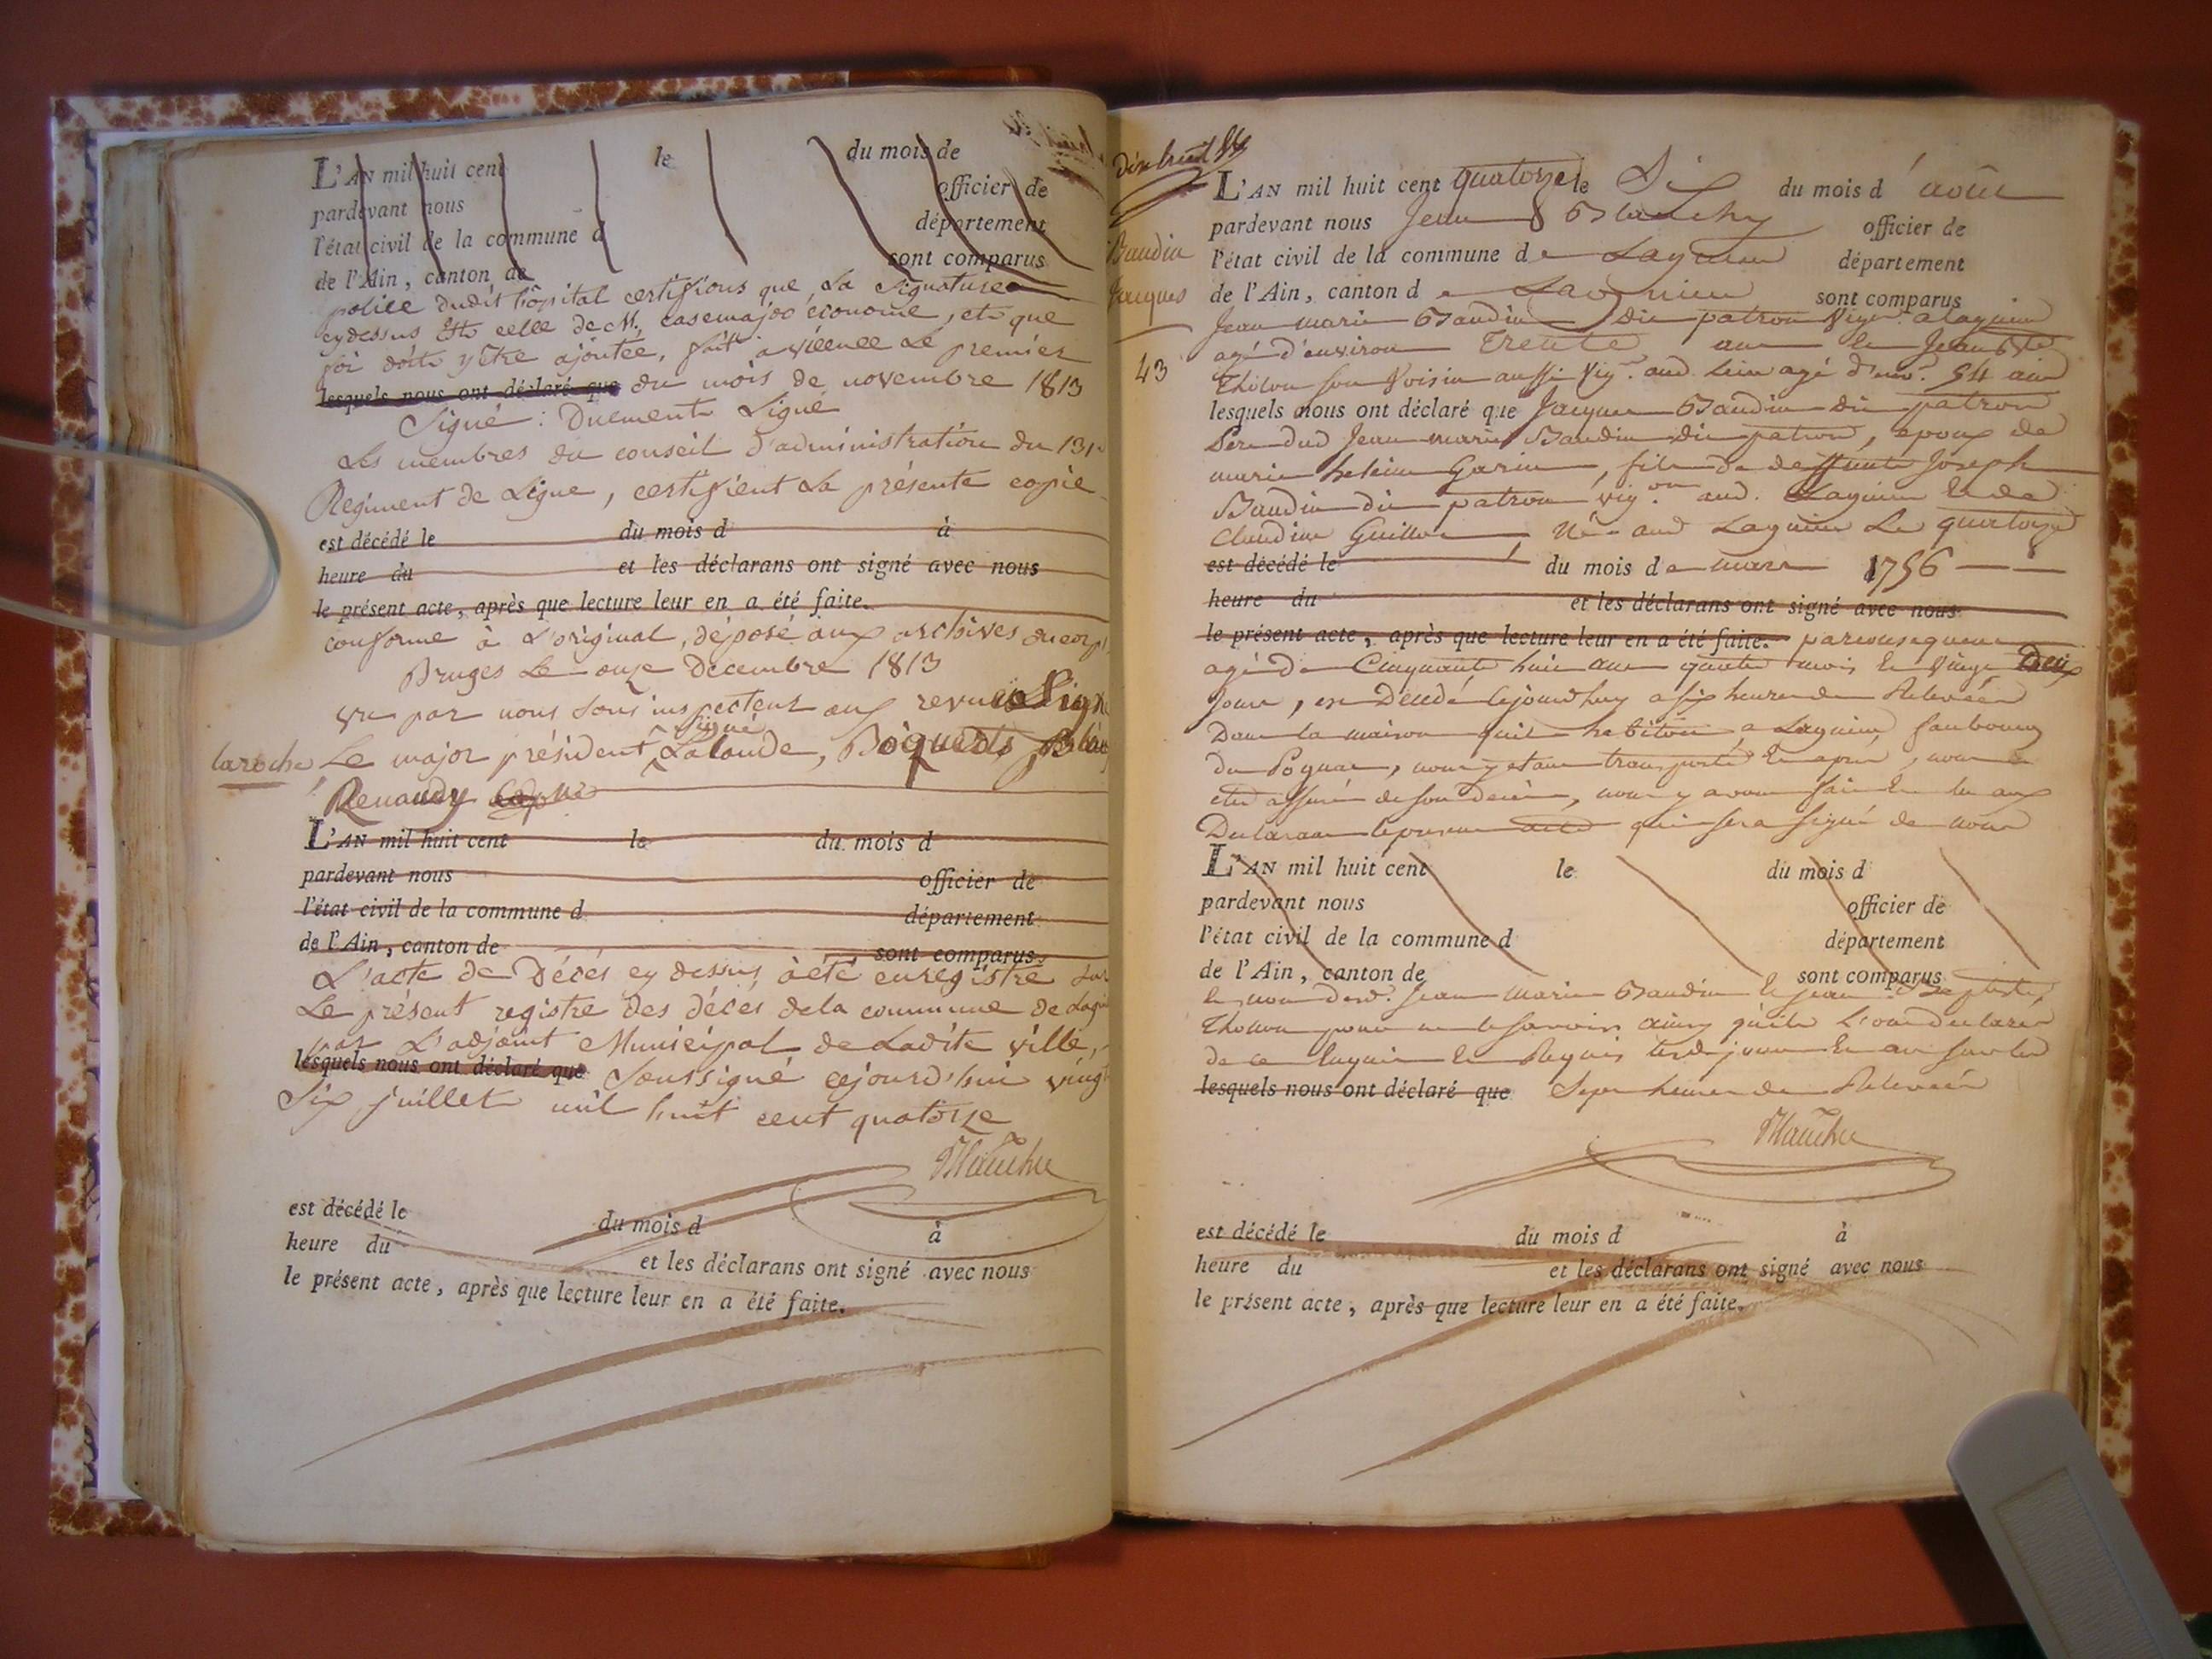 L'AN mil huit cent le du mois de
pardevant nous officier de
l'état civil de la commune d département
de l'Ain, canton de sont comparus
police dudit hôpital certifions que La Signature
cydessus Est celle de M. casemajoo économe, et que
foi doit y être ajoutée, fait a vienne Le premier
lesquels nous ont déclaré que du mois de novembre 1813
Signé : Duement Signé
Les membres du conseil d'administration du 131e
Regiment de Ligne, certifient La présente copie
est décédé le du mois d à
heure du et les déclarans ont signé avec nous
le présent acte, après que lecture leur en a été faite.
conforme à L'original, déposé aux archives du corps
Bruges Le onze Décembre 1813
vu par nous sous inspecteur aux revues Signé
signé
laroche, Le major président Lalande,
Renaudy
L'AN mil huit cent le du mois d
pardevant nous officier de
l'état civil de la commune d département
de l'Ain, canton de sont comparus
L'acte de Décés cy dessus, à été enregistré sur
Le présent registre des décés dela commune de Lagn
par L'adjoint Municipal de Ladite ville,
lesquels nous ont déclaré que Soussigné cejourd'hui vingt
Six juillet mil huit cent quatorze
Blanchy
est décédé le du mois d à
heure du et les déclarans ont signé avec nous
le présent acte, après que lecture leur en a été faite.
dix huit
Baudin
Jacques
43
L'AN mil huit cent quatorze le Six du mois d'août
pardevant nous Jean Blanchy officier de
l'état civil de la commune de Lagnieu département
de l'Ain, canton de Lagnieu sont comparus
Jean marie Baudin Dit patron Vign. a Lagnieu
agé d'environ Trente ans et Jean Bte
Thollon son Voisin aussi Vig. aud. Lieu agé d'env. 54 ans
lesquels nous ont déclaré que Jacques Baudin Dit patron
Pere dud Jean marie Baudin dit patron, epoux de
marie heleine Garin, fils de deffunts Joseph
Baudin dit patron vig.on aud. Lagnieu et de
Claudine Guillon, Né aud Lagnieu Le quatorze
est décédé le du mois de mars 1756
heure du et les déclarans ont signé avec nous
le présent acte, après que lecture leur en a été faite. par consequent
agé de Cinquante huit ans quatre mois et Vingt Deux
Jours, est Décédé cejourd'huy a six heures de Relevéé
Dans la maison quil habitoit a Lagnieu faubourg
du Pognat, nous y etant transporté et apres, nous
etre assuré de son decès, nous y avons fait et lu aux
Declarans le present acte qui sera signé de nous
L'AN mil huit cent le du mois d
pardevant nous officier de
l'état civil de la commune d département
de l'Ain, canton de sont comparus
et non desd. Jean Marie Baudin et Jean Baptiste
Thollon pour ne le savoir ainsy qu'ils l'ont declaré
de ce Enquis et Requis lesd. jour et an sur les
lesquels nous ont déclaré que Sept heures de Relevéé
Blanchy
est décédé le du mois d à
heure du et les déclarans ont signé avec nous
le présent acte, après que lecture leur en a été faite.